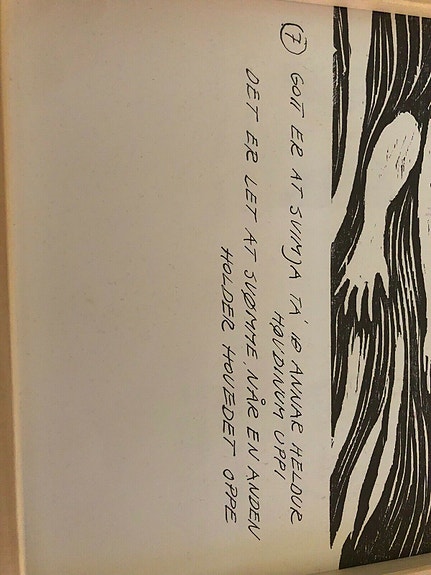 ⑦ GOTT ER AT SVIMJA TÁ IÐ ANNAR HELDUR
HØVDINUM UPPI
DET ER LET AT SVØMME, NÅR EN ANDEN
HOLDER HOVEDET OPPE